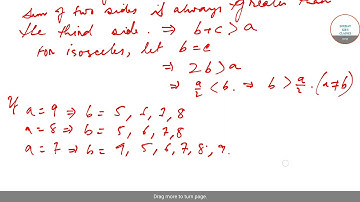 Sum of two sides is always greater than
the third side. ⇒ b+c > a
For isosceles, let b = c
⇒ 2b > a
⇒ a/2 < b. ⇒ b > a/2. (a ≠ b)
If a = 9 ⇒ b = 5, 6, 7, 8
a = 8 ⇒ b = 5, 6, 7, 8
a = 7 ⇒ b = 4, 5, 6, 7, 8, 9.
Drag more to turn page.